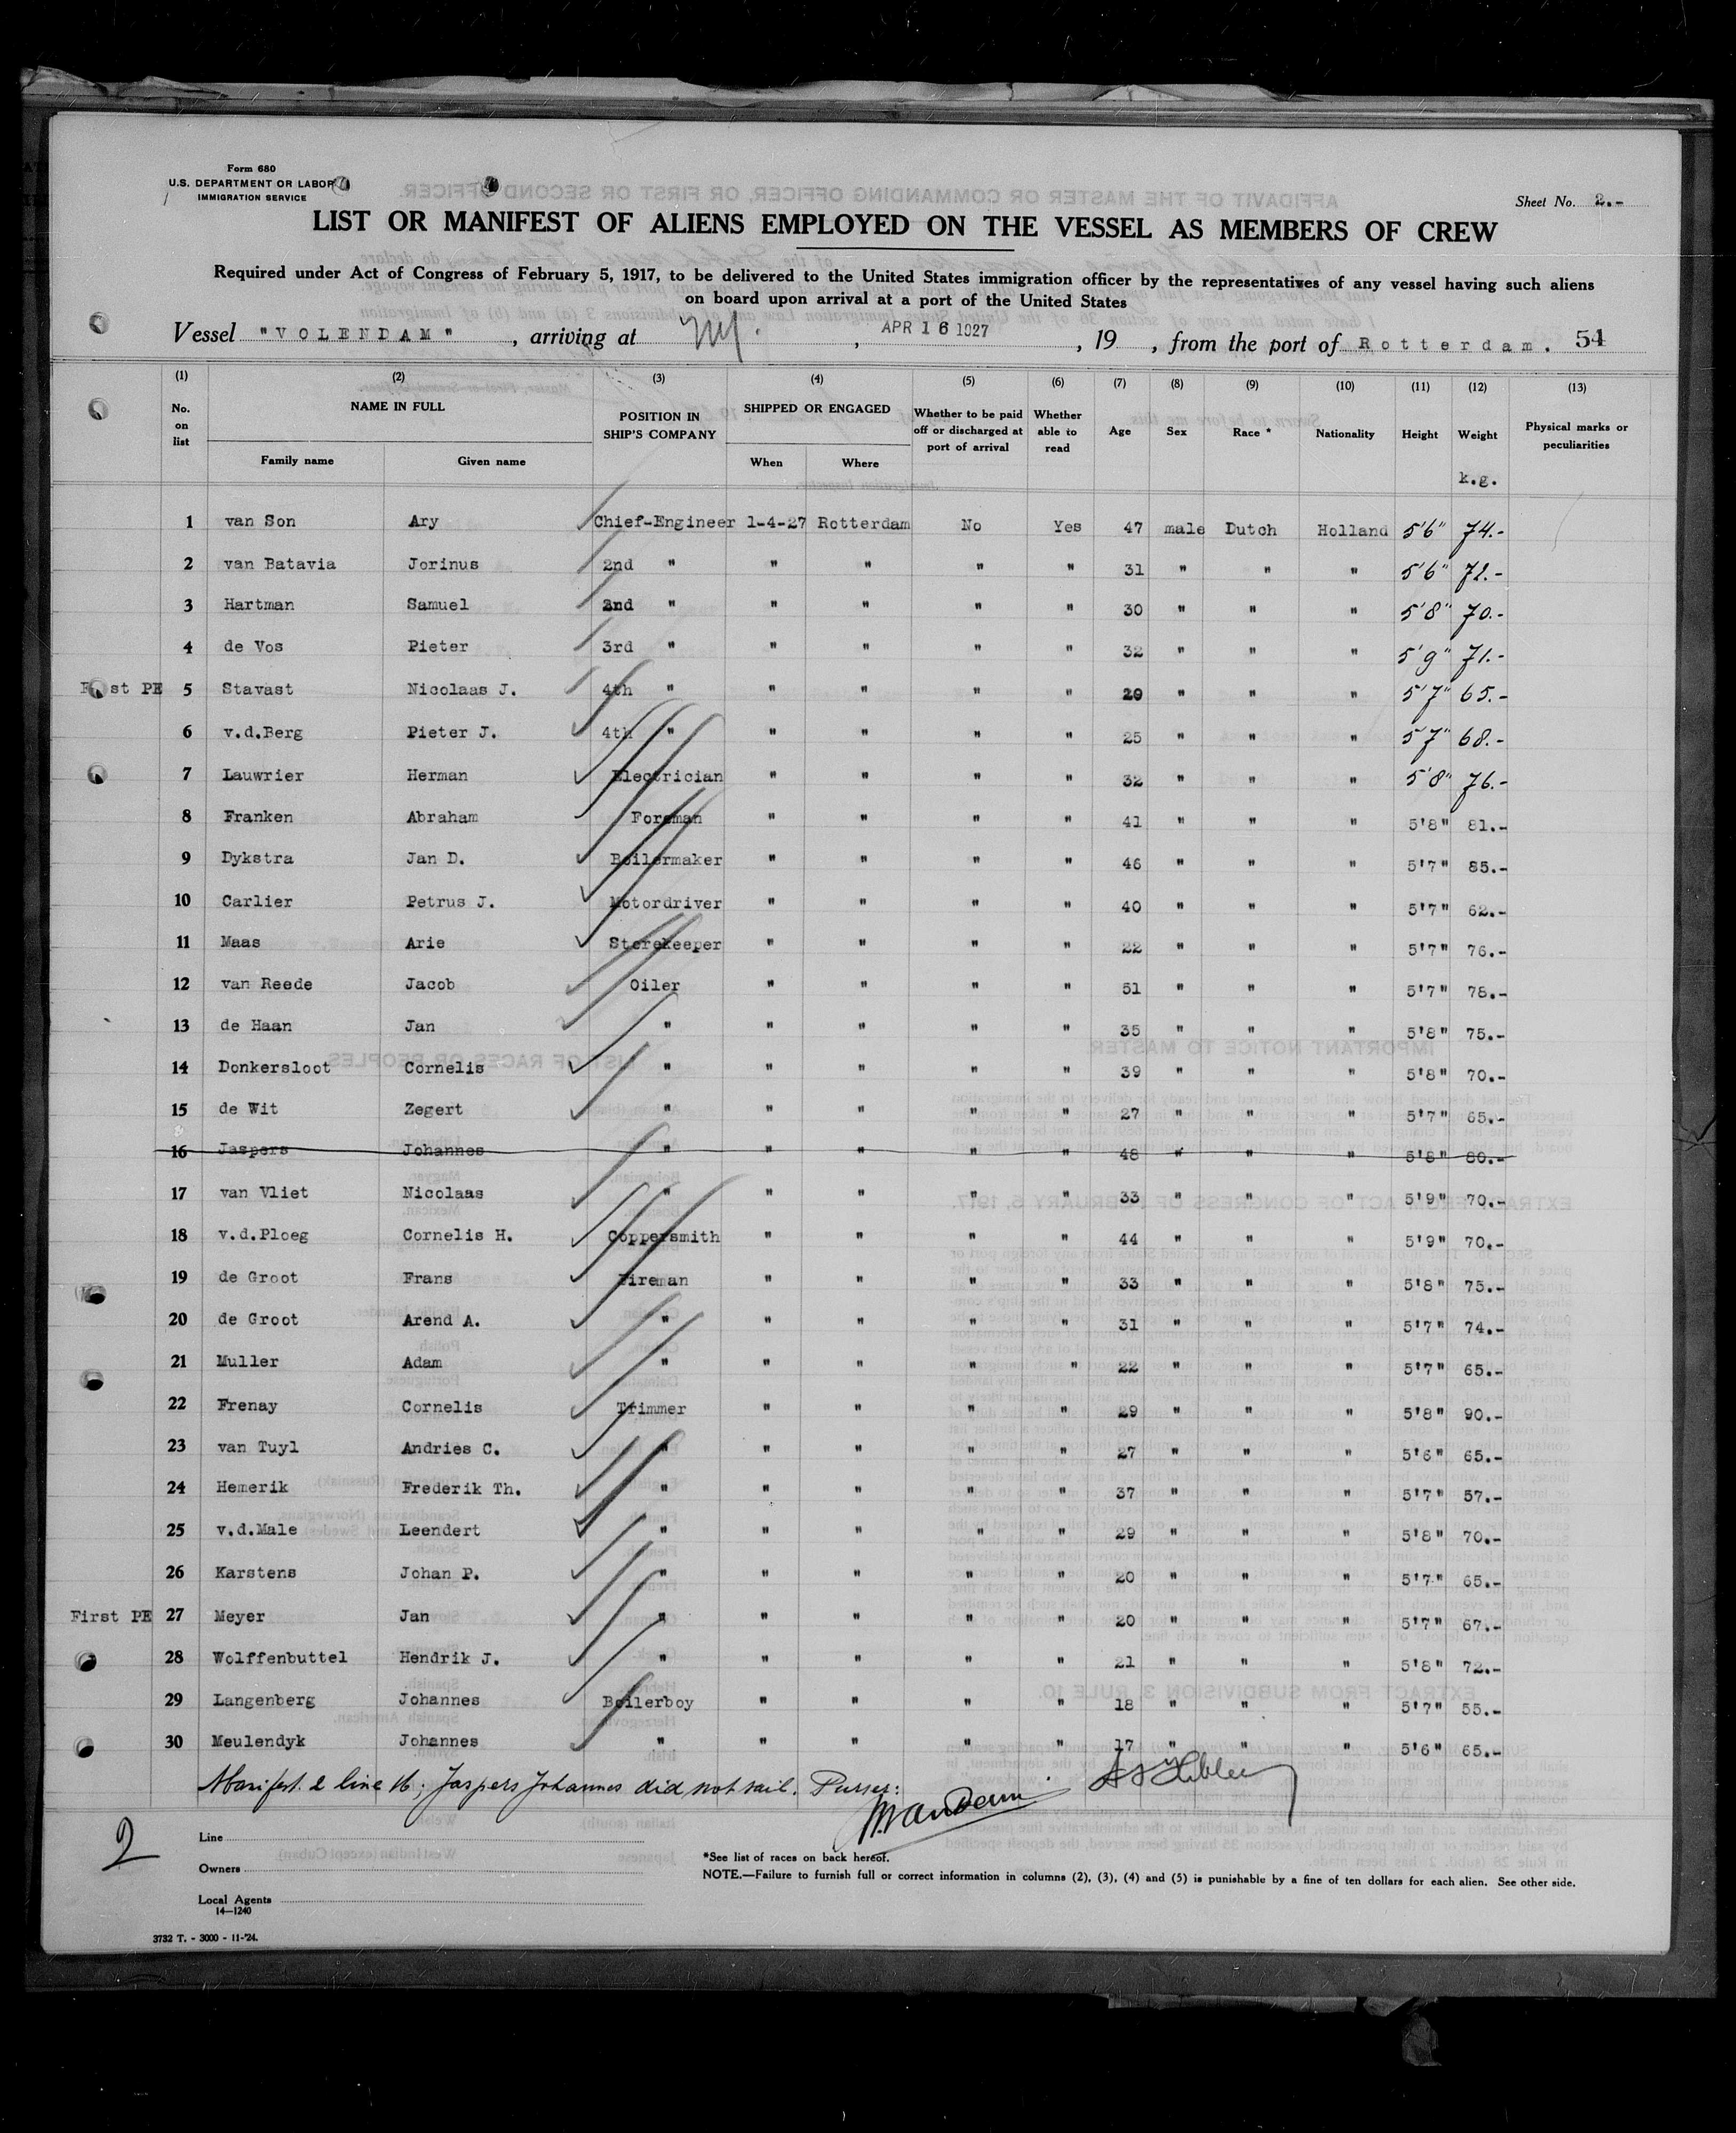 Form 680
U.S. DEPARTMENT OR LABOR
IMMIGRATION SERVICE
Sheet No. 2.-
LIST OR MANIFEST OF ALIENS EMPLOYED ON THE VESSEL AS MEMBERS OF CREW
Required under Act of Congress of February 5, 1917, to be delivered to the United States immigration officer by the representatives of any vessel having such aliens
on board upon arrival at a port of the United States
Vessel "VOLENDAM" , arriving at NY. , APR 16 1927 , 19 , from the port of Rotterdam. 54
(1) (2) (3) (4) (5) (6) (7) (8) (9) (10) (11) (12) (13)
No. on list NAME IN FULL Family name Given name POSITION IN SHIP'S COMPANY SHIPPED OR ENGAGED When Where Whether to be paid off or discharged at port of arrival Whether able to read Age Sex Race * Nationality Height Weight Physical marks or peculiarities
k.g.
1 van Son Ary Chief-Engineer 1-4-27 Rotterdam No Yes 47 male Dutch Holland 5'6" 74.-
2 van Batavia Jorinus 2nd " " " " " 31 " " " 5'6" 72.-
3 Hartman Samuel 2nd " " " " " 30 " " " 5'8" 70.-
4 de Vos Pieter 3rd " " " " " 32 " " " 5'9" 71.-
First PE 5 Stavast Nicolaas J. 4th " " " " " 29 " " " 5'7" 65.-
6 v.d.Berg Pieter J. 4th " " " " " 25 " " " 5'7" 68.-
7 Lauwrier Herman Electrician " " " " 32 " " " 5'8" 76.-
8 Franken Abraham Foreman " " " " 41 " " " 5'8" 81.-
9 Dykstra Jan D. Boilermaker " " " " 46 " " " 5'7" 85.-
10 Carlier Petrus J. Motordriver " " " " 40 " " " 5'7" 62.-
11 Maas Arie Storekeeper " " " " 22 " " " 5'7" 76.-
12 van Reede Jacob Oiler " " " " 51 " " " 5'7" 78.-
13 de Haan Jan " " " " " 35 " " " 5'8" 75.-
14 Donkersloot Cornelis " " " " " 39 " " " 5'8" 70.-
15 de Wit Zegert " " " " " 27 " " " 5'7" 65.-
16 Jaspers Johannes " " " " " 48 " " " 5'8" 80.-
17 van Vliet Nicolaas " " " " " 33 " " " 5'9" 70.-
18 v.d.Ploeg Cornelis H. Coppersmith " " " " 44 " " " 5'9" 70.-
19 de Groot Frans Fireman " " " " 33 " " " 5'8" 75.-
20 de Groot Arend A. " " " " " 31 " " " 5'7" 74.-
21 Muller Adam " " " " " 22 " " " 5'7" 65.-
22 Frenay Cornelis Trimmer " " " " 29 " " " 5'8" 90.-
23 van Tuyl Andries C. " " " " " 27 " " " 5'6" 65.-
24 Hemerik Frederik Th. " " " " " 37 " " " 5'7" 57.-
25 v.d.Male Leendert " " " " " 29 " " " 5'8" 70.-
26 Karstens Johan P. " " " " " 20 " " " 5'7" 65.-
First PE 27 Meyer Jan " " " " " 20 " " " 5'7" 67.-
28 Wolffenbuttel Hendrik J. " " " " " 21 " " " 5'8" 72.-
29 Langenberg Johannes Boilerboy " " " " 18 " " " 5'7" 55.-
30 Meulendyk Johannes " " " " " 17 " " " 5'6" 65.-
Manifest 2 line 16; Jaspers Johannes did not sail. Purser:
2
Line
Owners
Local Agents
14—1240
*See list of races on back hereof.
NOTE.—Failure to furnish full or correct information in columns (2), (3), (4) and (5) is punishable by a fine of ten dollars for each alien. See other side.
3732 T. - 3000 - 11-'24.